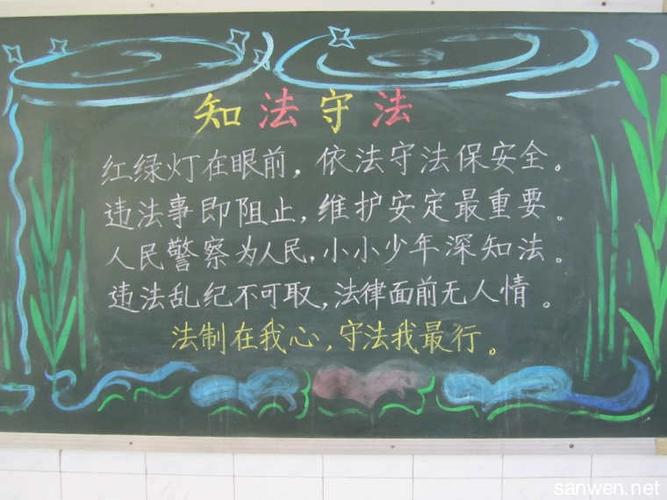 知法守法
红绿灯在眼前，依法守法保安全。
违法事即阻止，维护安定最重要。
人民警察为人民，小小少年深知法。
违法乱纪不可取，法律面前无人情。
法制在我心，守法我最行。
sanwen.net